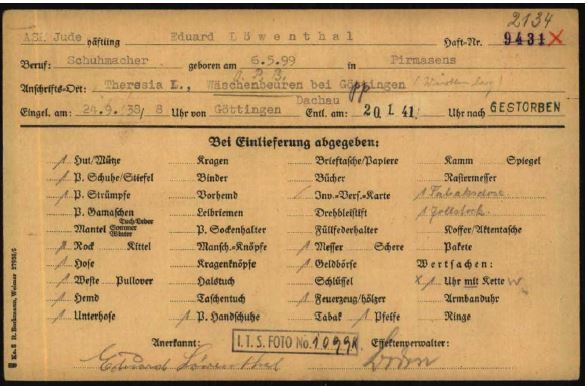 2134
ASR. Jude häftling Eduard Löwenthal Haft-Nr. 9431 X
Beruf: Schuhmacher geboren am 6.5.99 in Pirmasens
Anschrifts-Ort: Theresia L., Wäschenbeuren bei Göttingen
Dachau
Eingel. am: 24.9.38/ 8 Uhr von Göttingen Entl. am: 20 1 41 Uhr nach GESTORBEN
Bei Einlieferung abgegeben:
1 Hut/Mütze Kragen Brieftasche/Papiere Kamm Spiegel
1 P. Schuhe/Stiefel Binder Bücher Rasiermesser
1 P. Strümpfe Vorhemd / Inv.-Vers.-Karte 1 Tabaksdose
P. Gamaschen Leibriemen Drehbleistift 1 Zollstock
Mantel Tuch/Leder Sommer Winter P. Sockenhalter Füllfederhalter Koffer/Aktentasche
1 Rock Kittel Mansch.-Knöpfe 1 Messer Schere Pakete
1 Hose Kragenknöpfe 1 Geldbörse Wertsachen:
1 Weste Pullover Halstuch Schlüssel x 1 Uhr mit Kette w.
1 Hemd Taschentuch 1 Feuerzeug/hölzer Armbanduhr
1 Unterhose 1 P. Handschuhe Tabak 1 Pfeife Ringe
Anerkannt: I.T.S. FOTO No. Effektenverwalter:
Eduard Löwenthal